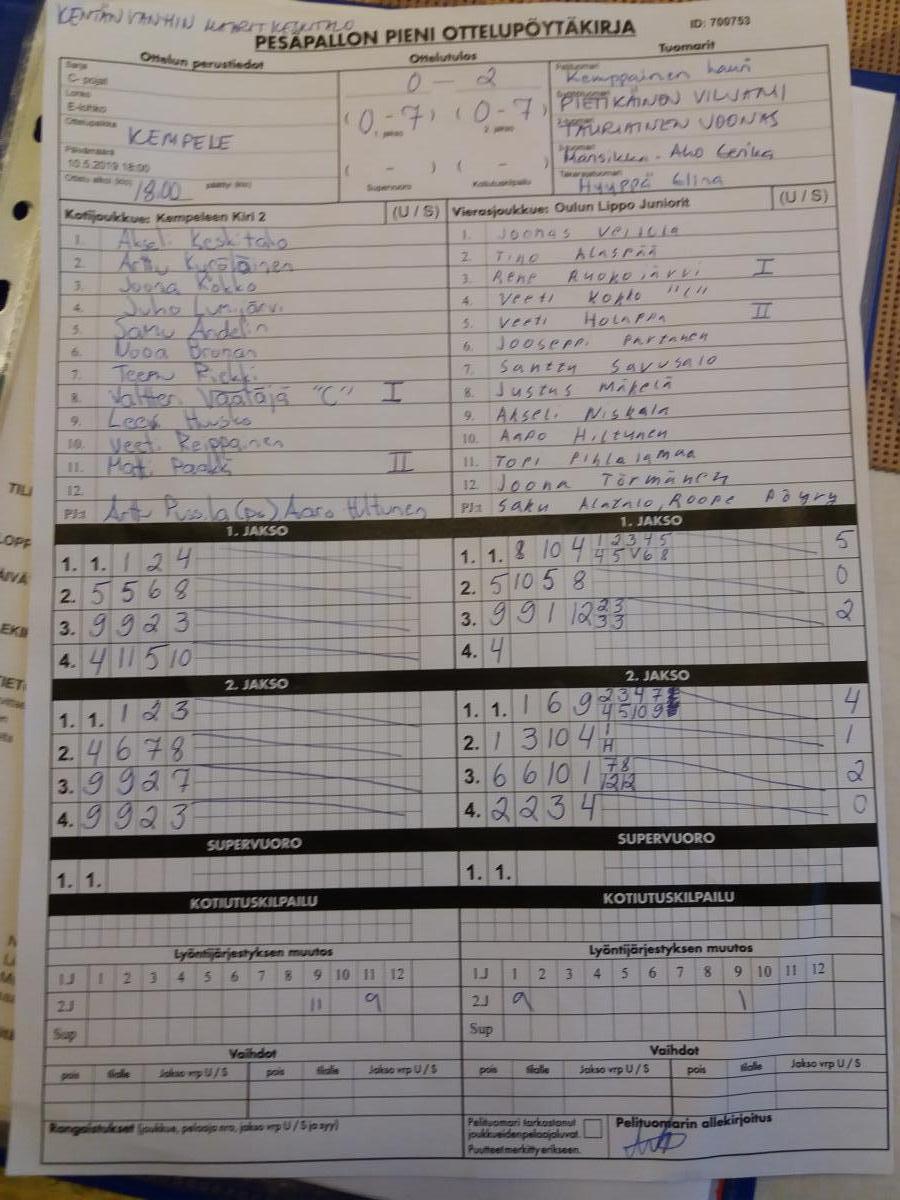 KENTÄN VANHIN
PESÄPALLON PIENI OTTELUPÖYTÄKIRJA
ID: 700753
Ottelun perustiedot
Sarja
C-pojat
Lohko
E-lohko
Ottelupaikka
KEMPELE
Päivämäärä
10.5.2019 18:00
Ottelu alkoi (klo) 18.00 päättyi (klo)
Ottelutulos
0 - 2
(0-7) (0-7)
1. jakso 2. jakso
( - ) ( - )
Supervuoro Kotiutuskilpailu
Tuomarit
Kemppainen Lauri
PIETIKÄINEN VILJAMI
TAURIAINEN JOONAS
Mansikka-Aho Eerika
Hyyppä Elina
Kotijoukkue: Kempeleen Kiri 2 (U / S)
1. Akseli Keskitalo
2. Arttu Kyröläinen
3. Joona Kokko
4. Juho Lumijärvi
5. Samu Andelin
6. Nooa
7. Teemu Piekki
8. Valtteri Väätäjä "C" I
9. Leevi Huusko
10. Veeti Reippainen
11. Matti II
12.
PJ:t Arttu Pussila (pj) Aaro Hiltunen
Vierasjoukkue: Oulun Lippo Juniorit (U / S)
1. Joonas
2. Tino Alaspää
3. Rene Ruokojärvi I
4. Veeti Kokko "C"
5. Veeti Holappa II
6. Jooseppi Partanen
7. Santtu Savusalo
8. Justus Mäkelä
9. Akseli Niskala
10. Aapo Hiltunen
11. Topi Pihlajamaa
12. Joona Törmänen
PJ:t Saku Alatalo, Roope Pöyry
1. JAKSO
1. 1. 1 2 4
2. 5 5 6 8
3. 9 9 2 3
4. 4 11 5 10
1. JAKSO
1. 1. 8 10 4 1 2 3 4 5 5
4 5 V 6 8
2. 5 10 5 8 0
3. 9 9 1 12 2 3 2
3 3
4. 4
2. JAKSO
1. 1. 1 2 3
2. 4 6 7 8
3. 9 9 2 7
4. 9 9 2 3
2. JAKSO
1. 1. 1 6 9 2 3 4 7 4
4 5 10 9
2. 1 3 10 4 1 1
H
3. 6 6 10 1 7 8 2
12 12
4. 2 2 3 4 0
SUPERVUORO
1. 1.
SUPERVUORO
1. 1.
KOTIUTUSKILPAILU
KOTIUTUSKILPAILU
Lyöntijärjestyksen muutos
1J 1 2 3 4 5 6 7 8 9 10 11 12
2J 11 9
Sup
Lyöntijärjestyksen muutos
1J 1 2 3 4 5 6 7 8 9 10 11 12
2J 9 1
Sup
Vaihdot
pois tilalle Jakso vrp U / S pois tilalle Jakso vrp U / S
Vaihdot
pois tilalle Jakso vrp U / S pois tilalle Jakso vrp U / S
Rangaistukset (joukkue, pelaaja nro, jakso vrp U / S ja syy)
Pelituomari tarkastanut
joukkueiden pelaajaluvat.
Puutteet merkitty erikseen.
Pelituomarin allekirjoitus